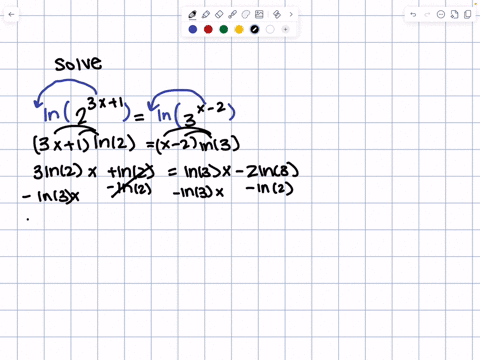 solve
ln(2^{3x+1}) = ln(3^{x-2})
(3x+1) ln(2) = (x-2) ln(3)
3ln(2) x + ln(2) = ln(3) x - 2ln(3)
- ln(3)x - ln(2) - ln(3) x - ln(2)